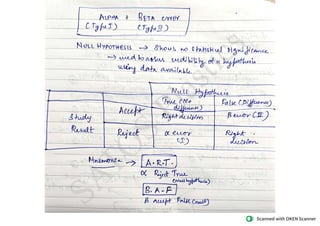 ALPHA & BETA error
(Type I) (Type II)
NULL HYPOTHESIS → Shows no Statistical Significance
→ used to assess credibility of a hypothesis
using data available
Null Hypothesis
True (No difference)
False (Difference)
Study Result
Accept
Right decision
B error (II)
Reject
α error (I)
Right decision
Mnemonic →
A.R.T.
α Reject True
(null hypothesis)
B.A.F
B accept False (null)
Scanned with OKEN Scanner